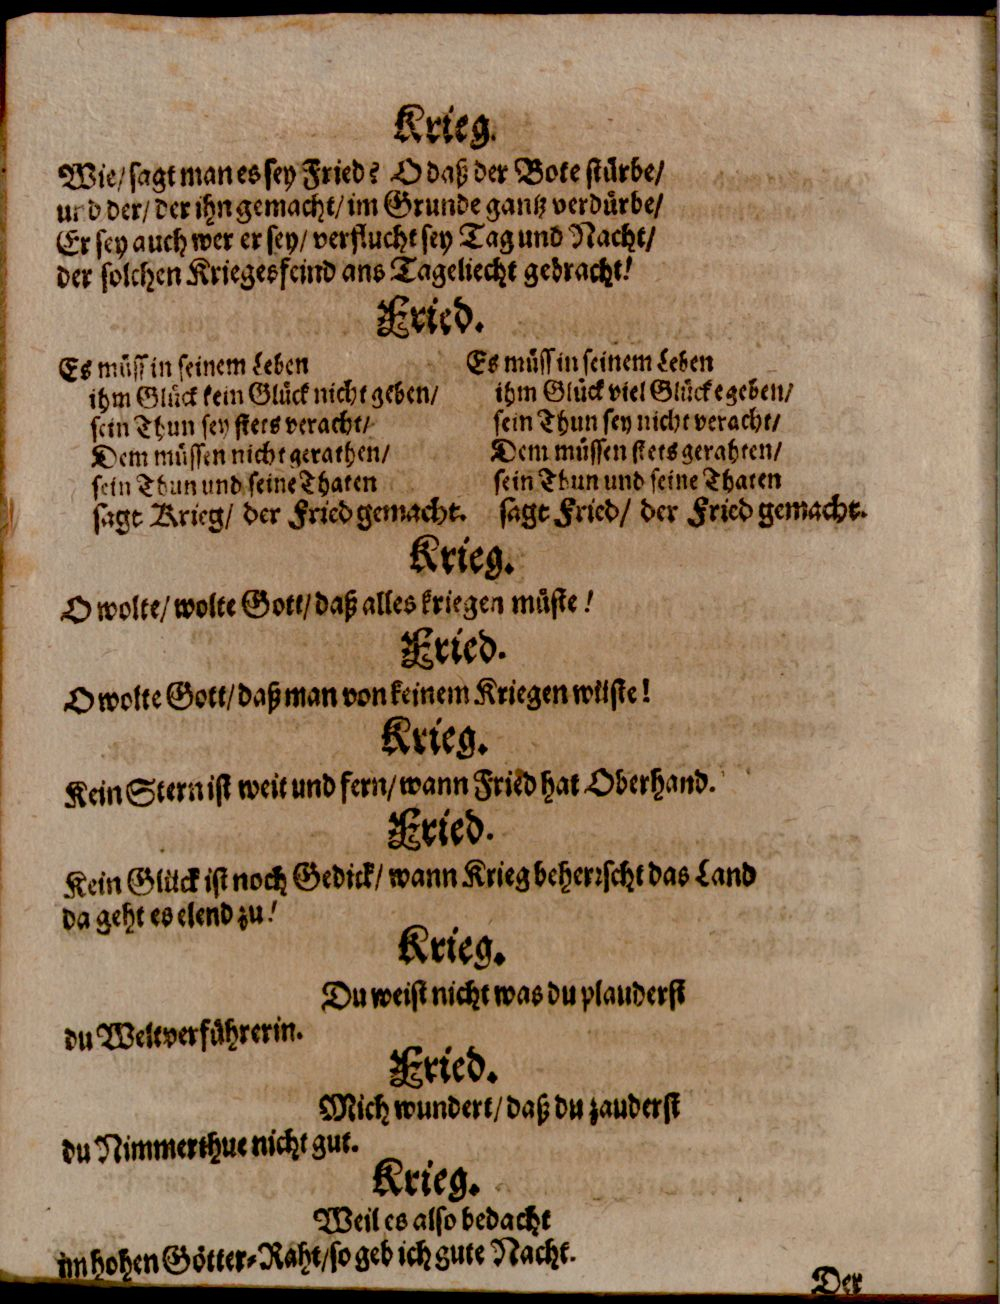 Krieg.
Wie/ sagt man es sey Fried? O daß der Bote stürbe/
und der/ der ihn gemacht/ im Grunde gantz verdürbe/
Er sey auch wer er sey/ verflucht sey Tag und Nacht/
der solchen Kriegesfeind ans Tageliecht gebracht!
Fried.
Es müss in seinem Leben
ihm Glück kein Glück nicht geben/
sein Thun sey stets veracht/
Dem müssen nicht gerathen/
sein Thun und seine Thaten
sagt Krieg/ der Fried gemacht.
Es müss in seinem Leben
ihm Glück viel Glücke geben/
sein Thun sey nicht veracht/
Dem müssen stets gerahten/
sein Thun und seine Thaten
sagt Fried/ der Fried gemacht.
Krieg.
O wolte/ wolte Gott/ daß alles kriegen müste!
Fried.
O wolte Gott/ daß man von keinem Kriegen wüste!
Krieg.
Kein Stern ist weit und fern/ wann Fried hat Oberhand.
Fried.
Kein Glück ist noch Gedick/ wann Krieg beherrscht das Land
da geht es elend zu!
Krieg.
Du weist nicht was du plauderst
du Weltverführerin.
Fried.
Mich wundert/ daß du zauderst
du Nimmerthue nicht gut.
Krieg.
Weil es also bedacht
im hohen Götter-Raht/ so geb ich gute Nacht.
Der